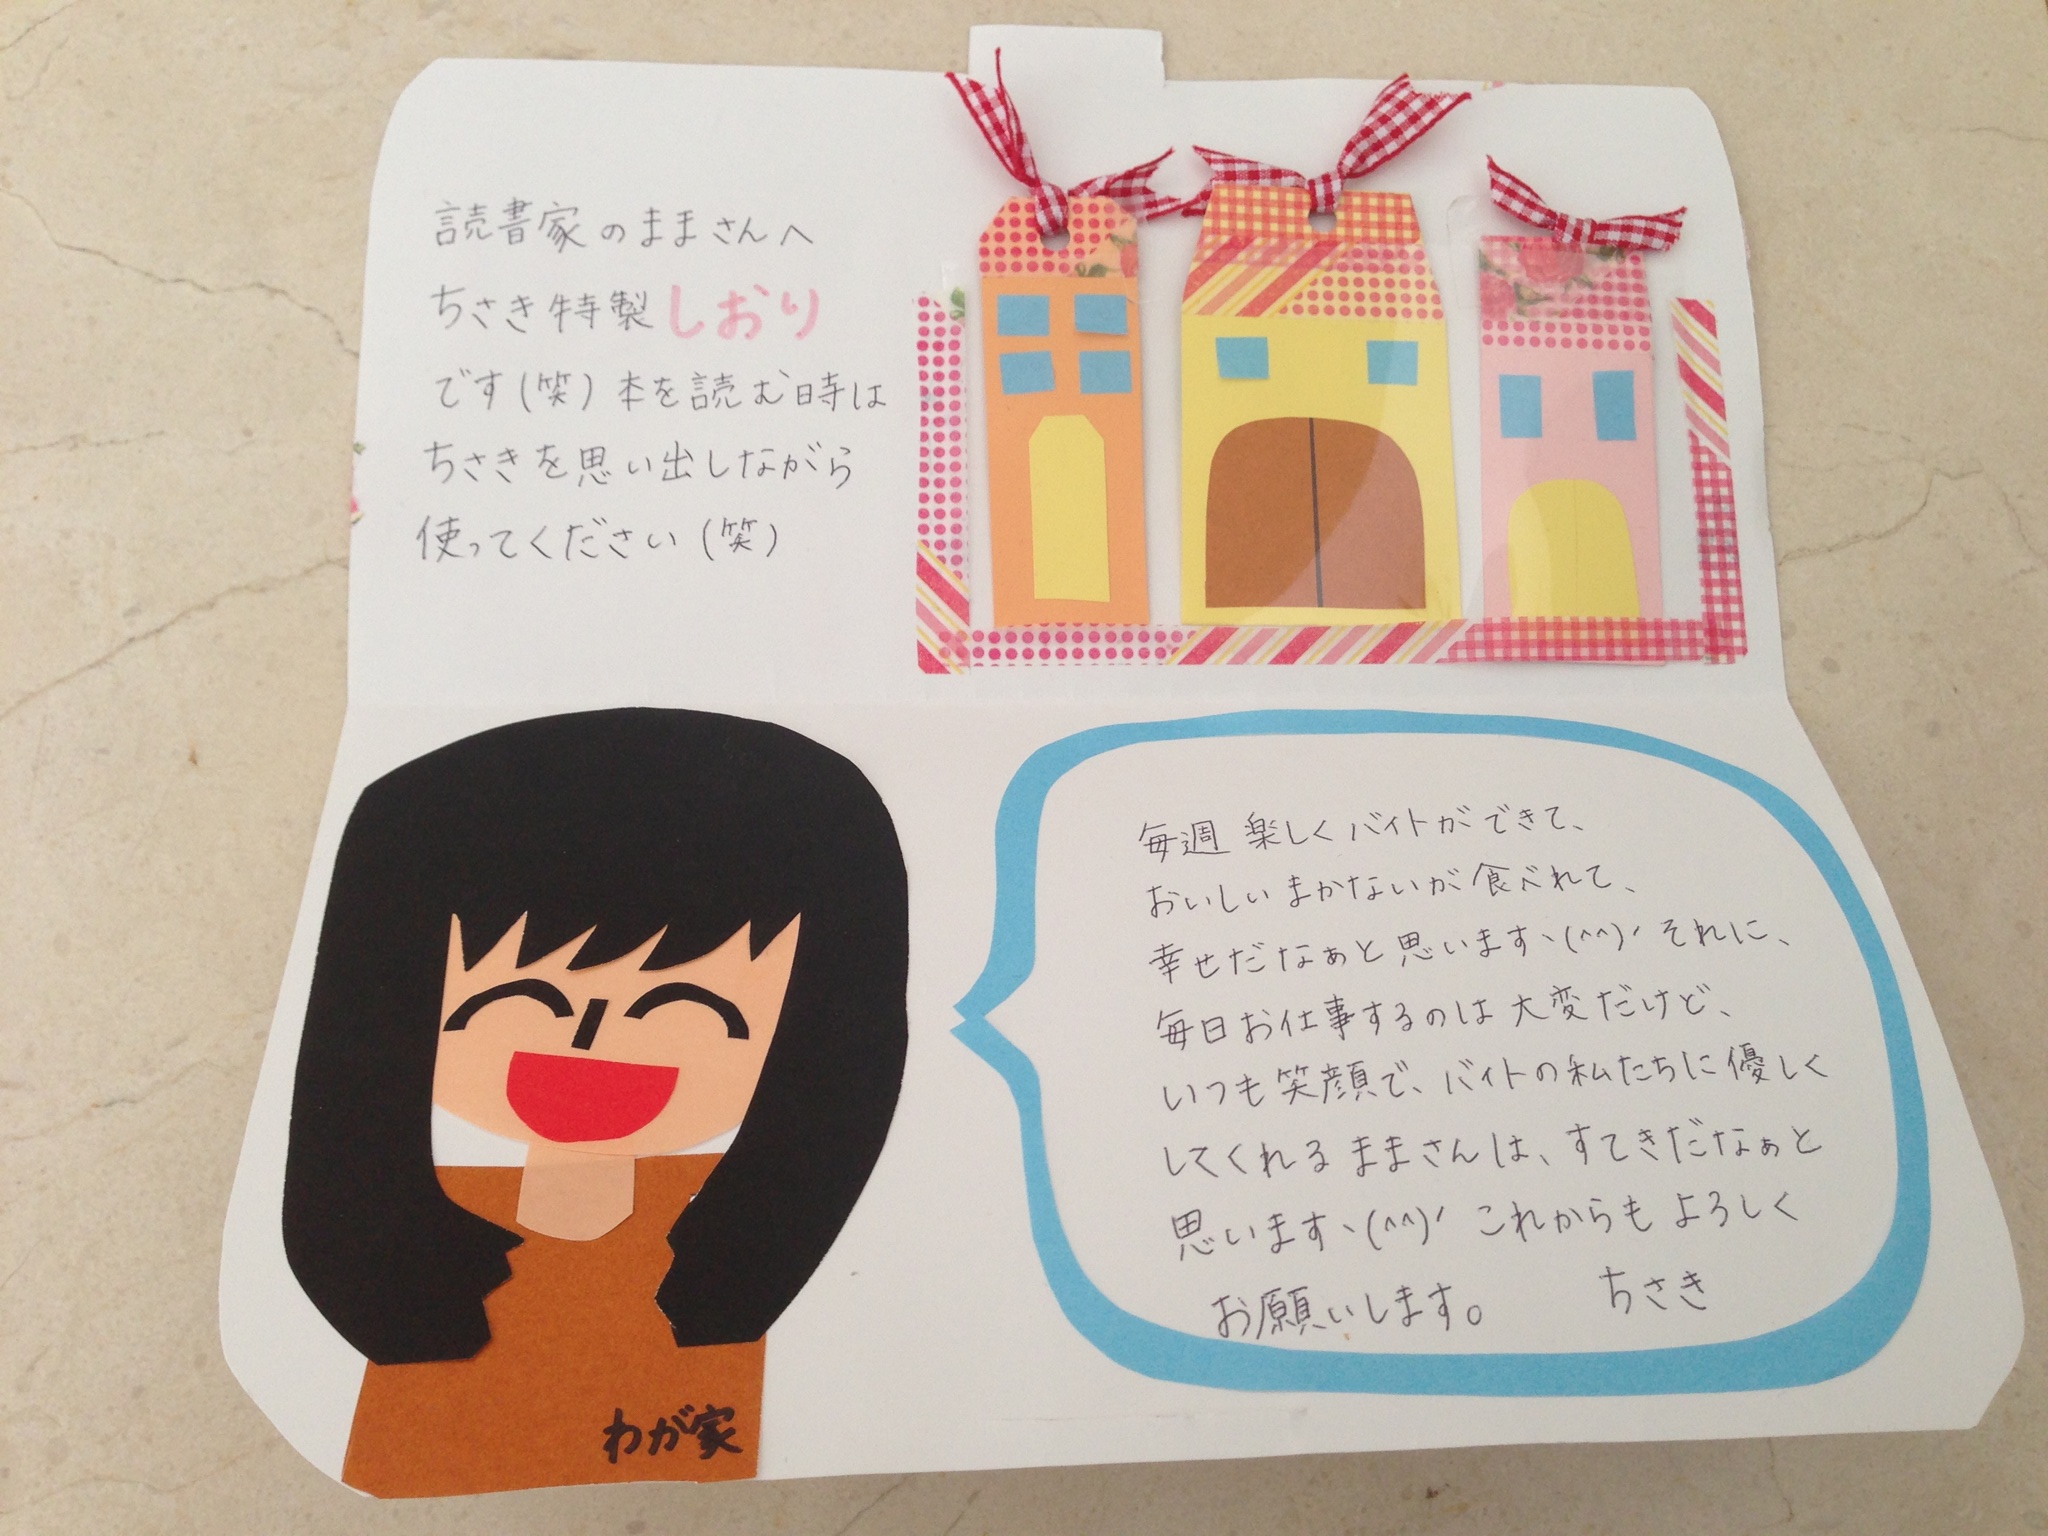 読書家のままさんへ
ちさき特製しおり
です(笑)本を読む時は
ちさきを思い出しながら
使ってください(笑)
毎週楽しくバイトができて、
おいしいまかないが食べれて、
幸せだなぁと思いますヽ(^^)ノそれに、
毎日お仕事するのは大変だけど、
いつも笑顔で、バイトの私たちに優しく
してくれるままさんは、すてきだなぁと
思いますヽ(^^)ノこれからもよろしく
お願いします。 ちさき
わが家